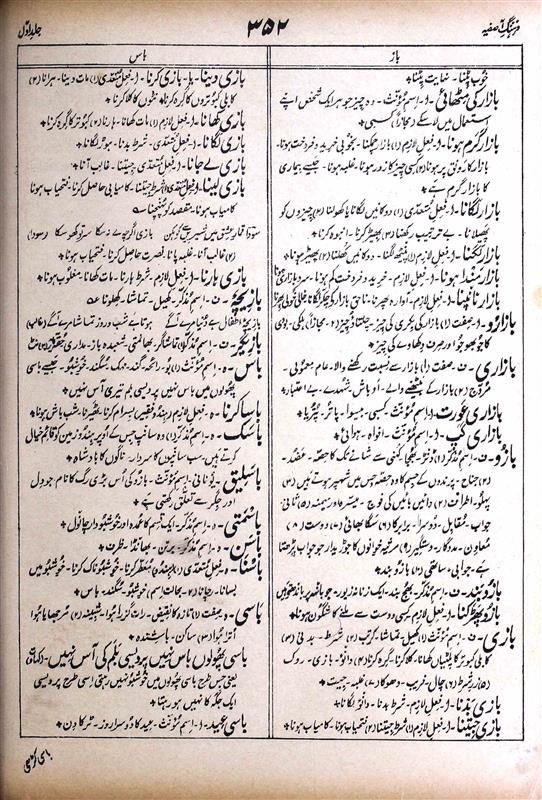 فرہنگِ آصفیہ
۳۵۲
جلد اوّل
باز
خوب پٹنا۔ نہایت پٹنا ؞
بازار کی مٹھائی۔ ا۔ اسم مؤنث۔ وہ چیز جو ہر ایک شخص اپنے
استعمال میں لا سکے (مجازاً) کسبی ؞
بازار گرم ہونا۔ ا۔ فعل لازم (۱) بازار چمکنا۔ بخوبی خرید و فروخت ہونا۔
بازار کا رونق پر ہونا (۲) کسی چیز کا زور ہونا۔ غلبہ ہونا۔ جیسے بیماری
کا بازار گرم ہے ؞
بازار لگانا۔ ا۔ فعل متعدی (۱) دوکانیں لگانا یا کھولنا (۲) چیزوں کو
پھیلانا۔ بے ترتیب رکھنا (۳) بھیڑ کرنا۔ انبوہ کرنا ؞
بازار لگنا۔ ا۔ فعل لازم (۱) پینٹھ لگنا۔ دوکانیں کھلنا (۲) بھیڑ ہونا ؞
بازار مندا ہونا۔ ا۔ فعل لازم۔ خرید و فروخت کم ہونا۔ سرد بازاری ہونا
بازار ناپنا۔ ا۔ فعل لازم۔ آوارہ پھرنا۔ ناحق بازار کے چکر لگانا خالی خولی پھرنا
بازارو۔ ا۔ صفت (۱) بازار کی بکری کی چیز۔ چلتاؤ چیز (۲ مجازاً) ہلکی۔ بودی
صرف دکھاوے کی چیز ؞
بازاری۔ ف۔ صفت (۱) بازار سے نسبت رکھنے والا۔ عام۔ معمولی۔
مروّج (۲) بازار کے بیٹھنے والے۔ اوباش۔ شہدے۔ بے اعتبار ؞
بازاری عورت۔ ا۔ اسم مؤنث۔ کسبی۔ بیسوا۔ پاتر۔ پتریا ؞
بازاری گپ۔ ا۔ اسم مؤنث۔ افواہ۔ ہوائی ؞
بازو۔ ف۔ اسم مذکر (۱) ڈنڑ۔ بھجا۔ کہنی سے شانے تک کا حصّہ۔ عضُد۔
(۲) جناح۔ پرندوں کے جسم کا وہ حصّہ جس میں شہپر ہوتے ہیں (۳)
پہلو۔ اطراف (۴) دائیں بائیں کی فوج۔ میسرہ اور میمنہ (۵) ثانی
جواب۔ مقابل۔ دوسرا۔ برابر کا (۶) سگا بھائی (۷) دوست (۸)
معاون۔ مددگار۔ دستگیر (۹) مرثیہ خوانوں کا جوڑیدار جو جواب پڑھتا
ہے۔ جوابی۔ ساتھی (۱۰) بازو بند ؞
بازو بند۔ ف۔ اسم مذکر۔ بھج بند۔ ایک زنانہ زیور۔ جو بازو پر باندھتے ہیں
بازو پھڑکنا۔ ا۔ فعل لازم۔ کسی دوست سے ملنے کا شگون ہونا ؞
بازی۔ ف۔ اسم مؤنث (۱) کھیل۔ تماشا۔ کرتب (۲) شرط۔ بدنی (۳)
کابلی کبوتر کا پلٹنیاں کھانا۔ کلا کرنا۔ گرہ کرنا (۴) داؤں۔ بازی۔ روک
(۵) زر شرط (۶) چال۔ فریب۔ دھوکا (۷) غلبہ۔ جیت ؞
بازی بدنا۔ ا۔ فعل لازم۔ شرط بدنا۔ داؤں لگانا ؞
بازی جیتنا۔ ا۔ فعل لازم (۱) شرط جیتنا (۲) فتحیاب ہونا۔ کامیاب ہونا ؞
باس
بازی دینا۔ یا۔ بازی کرنا۔ ا۔ فعل متعدی (۱) مات دینا۔ ہرانا (۲)
کابلی کبوتروں کا گرہ کرنا۔ لکھوں کا کلا کرنا ؞
بازی کھانا۔ ا۔ فعل لازم (۱) مات کھانا۔ ہارنا (۲) کبوتر کا گرہ کرنا ؞
بازی لگانا۔ ا۔ فعل متعدی۔ شرط بدنا۔ ہوڑ لگانا ؞
بازی لے جانا۔ ا۔ فعل متعدی۔ جیتنا۔ غالب آنا ؞
بازی لینا۔ ا۔ فعل متعدی (۱) شرط جیتنا۔ کامیابی حاصل کرنا۔ فتحیاب ہونا
کامیاب ہونا۔ مقصد کو پہنچنا ؞
سودا قمارِ عشق میں شیریں سے کوہکن   بازی اگرچہ لے نہ سکا سر تو کھو سکا (سودا)
(۲) غالب آنا۔ غلبہ پانا۔ نصرت حاصل کرنا۔ فتحیاب ہونا ؞
بازی ہارنا۔ ا۔ فعل لازم۔ شرط ہارنا۔ مات کھانا۔ مغلوب ہونا ؞
بازیچہ۔ ف۔ اسم مذکر۔ کھیل۔ تماشا۔ کھلونا ؎
بازیچۂ اطفال ہے دنیا مرے آگے   ہوتا ہے شب و روز تماشا مرے آگے (غالب)
بازیگر۔ ف۔ اسم مذکر۔ تماشاگر۔ بھانمتی۔ شعبدہ باز۔ مداری۔ نٹ
باس۔ ہ۔ اسم مؤنث (۱) بو۔ رائحہ۔ گند۔ مہک۔ سگند۔ خوشبو۔ جیسے باسی
پھولوں میں باس نہیں پردیسی بلم تیری آس نہیں ؞
باسا کرنا۔ ہ۔ فعل لازم (ہندو فقیر) بسرام کرنا۔ ٹھیرنا۔ شب باش ہونا ؞
باسک۔ ہ۔ اسم مذکر (۱) وہ سانپ جس کے اوپر ہندو زمین کو قائم خیال
کرتے ہیں۔ سب سانپوں کا سردار۔ ناگوں کا بادشاہ
باسلیق۔ یونانی۔ اسم مؤنث۔ بازو کی اُس بڑی رگ کا نام جو دل
اور جگر سے تعلق رکھتی ہے ؞
باسمتی۔ ہ۔ اسم مذکر۔ ایک قسم کا عمدہ اور خوشبودار چانول ؞
باسن۔ ہ۔ اسم مذکر۔ برتن۔ بھانڈا۔ ظرف ؞
باسنا۔ ہ۔ فعل متعدی (۱) (ہندو) معطر کرنا۔ خوشبوناک کرنا۔ خوشبو میں
بسانا۔ رچانا (۲ بحالتِ اسم) خوشبو۔ سگند۔ باس ؞
باسی۔ ہ۔ صفت (۱) تازہ کا نقیض۔ رات گزرا ہوا۔ شبینہ (۲) مرجھایا ہوا
اُترا ہوا (۳) ساکن۔ باشندہ ؞
باسی پھولوں باس نہیں پردیسی بلم کی آس نہیں۔ (کہاوت)
یعنی جس طرح باسی پھولوں میں خوشبو نہیں رہتی اسی طرح پردیسی
ایک جگہ کا نہیں ہو رہتا ؞
باسی عید۔ ا۔ اسم مؤنث۔ عید کا دوسرا روز۔ ٹر کا دن ؞